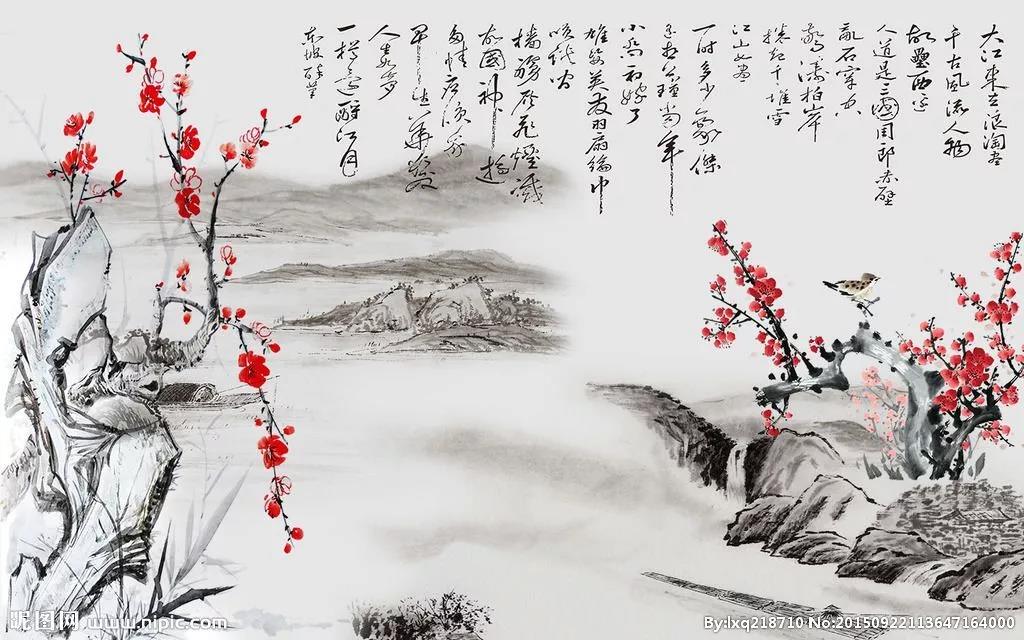 大江東去浪淘盡
千古風流人物
故壘西邊
人道是三國周郎赤壁
亂石穿空
驚濤拍岸
捲起千堆雪
江山如畫
一時多少豪傑
遙想公瑾當年
小喬初嫁了
雄姿英發羽扇綸巾
談笑間
檣艣灰飛煙滅
故國神遊
多情應笑我
早生華髮
人生如夢
一樽還酹江月
東坡醉筆
昵图网 www.nipic.com
By:lxq218710 No:20150922113647164000